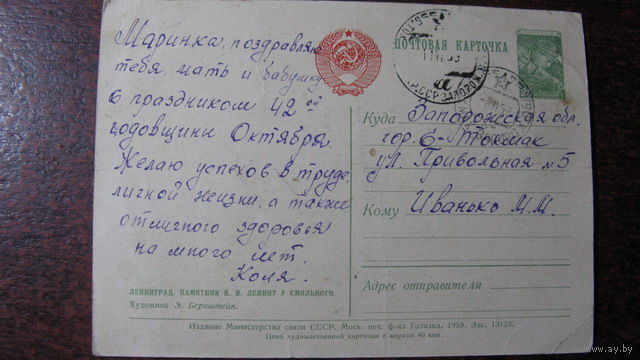 Маринка, поздравляю
тебя, мать и бабушку
с праздником 42 ой
годовщины Октября.
Желаю успехов в труде
личной жизни, а также
отличного здоровья
на много лет.
Коля.
ЛЕНИНГРАД. ПАМЯТНИК В. И. ЛЕНИНУ У СМОЛЬНОГО.
Художник Э. Бернштейн.
ПОЧТОВАЯ КАРТОЧКА
Куда Запорожская обл.
гор. Б-Токмак
ул. Привольная №5
Кому Иванько М.М.
Адрес отправителя
Издание Министерства связи СССР. Моск. печ. ф-ка Гознака. 1959. Зак. 13123.
Цена художественной карточки с маркой 40 коп.
www.ay.by